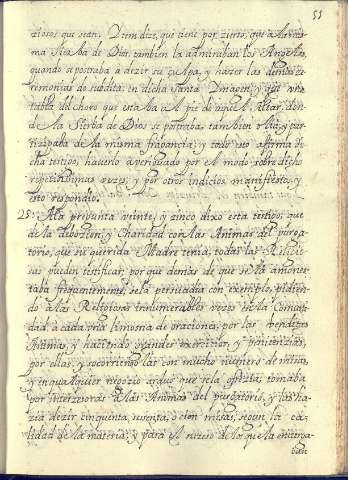 51
ziosos que sean. Item dize, que tiene por zierto, que a la mis-
ma Sierba de Dios tambien la admiraban los Angeles,
quando a postraba a dezir su culpa, y hazer las demas ze-
remonias de subdita en dicha santa Ymagen; y que una
tabla del choro que estaba al pie de aquel Altar, don-
de la Sierba de Dios se postraba, tambien olia, y par-
tizipaba de la misma fragancia; y todo esto affirma di-
cha testigo, haverlo aperibido por el modo sobre dicho
repetidisimas vezes, y por otros indicios manifiestos, y
esto respondio.
25. A la pregunta veinte, y cinco dixo esta testigo, que
de la deboçion, y Charidad con las Animas del purga-
torio, que su querida Madre tenia, todas las Religio-
sas pueden testificar; por que demas de que se la amones-
taba frequentemente, se la persuadia con exemplo, pidien-
do a las Religiosas innumerables vezes en la Comuni-
dad a cada una limosna de oraciones, por las benditas
Animas, y haciendo grandes exercicios, y penitencias,
por ellas, y socorriendo las con mucho numero de misas,
y en qualquier negocio arduo que se la ofrezia, tomaba
por interzesoras a las Animas del purgatorio, y las ha-
zia dezir cinquenta, sesenta, o cien misas, segun la ca-
lidad de la materia; y para el suceso de los que la encarga-
ban